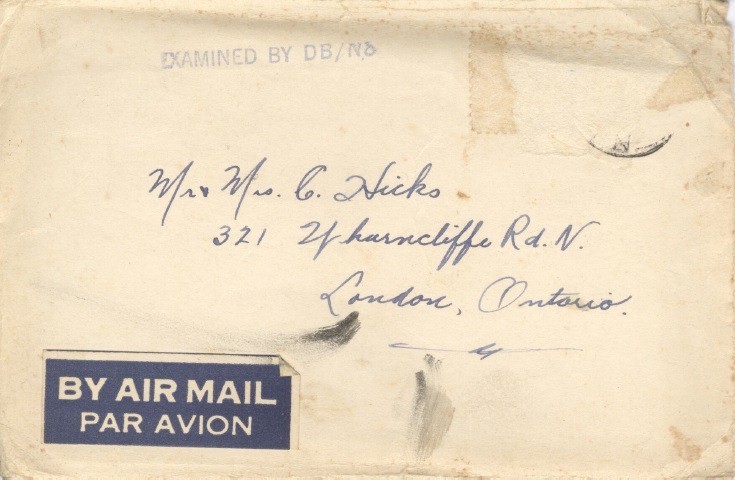 EXAMINED BY DB/N8
Mr & Mrs. C. Hicks
321 Wharncliffe Rd. N.
London, Ontario.
BY AIR MAIL
PAR AVION